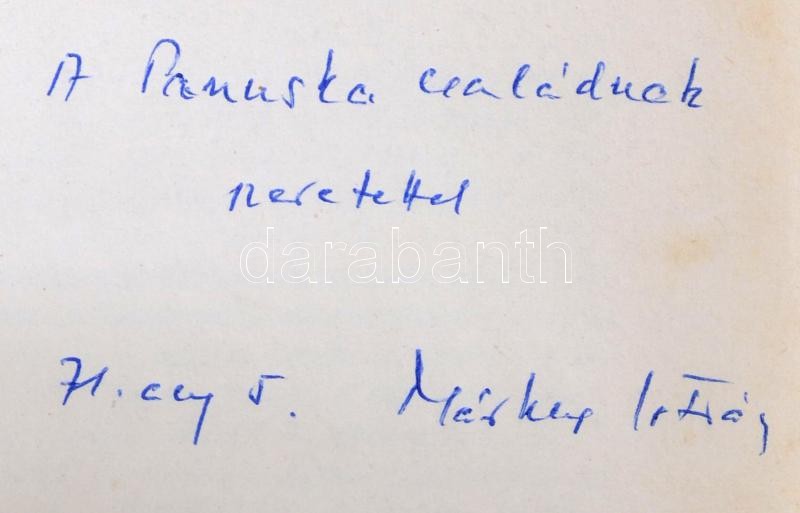 A Panuska családnak
szeretettel
darabanth
71. aug 5. Márkus István